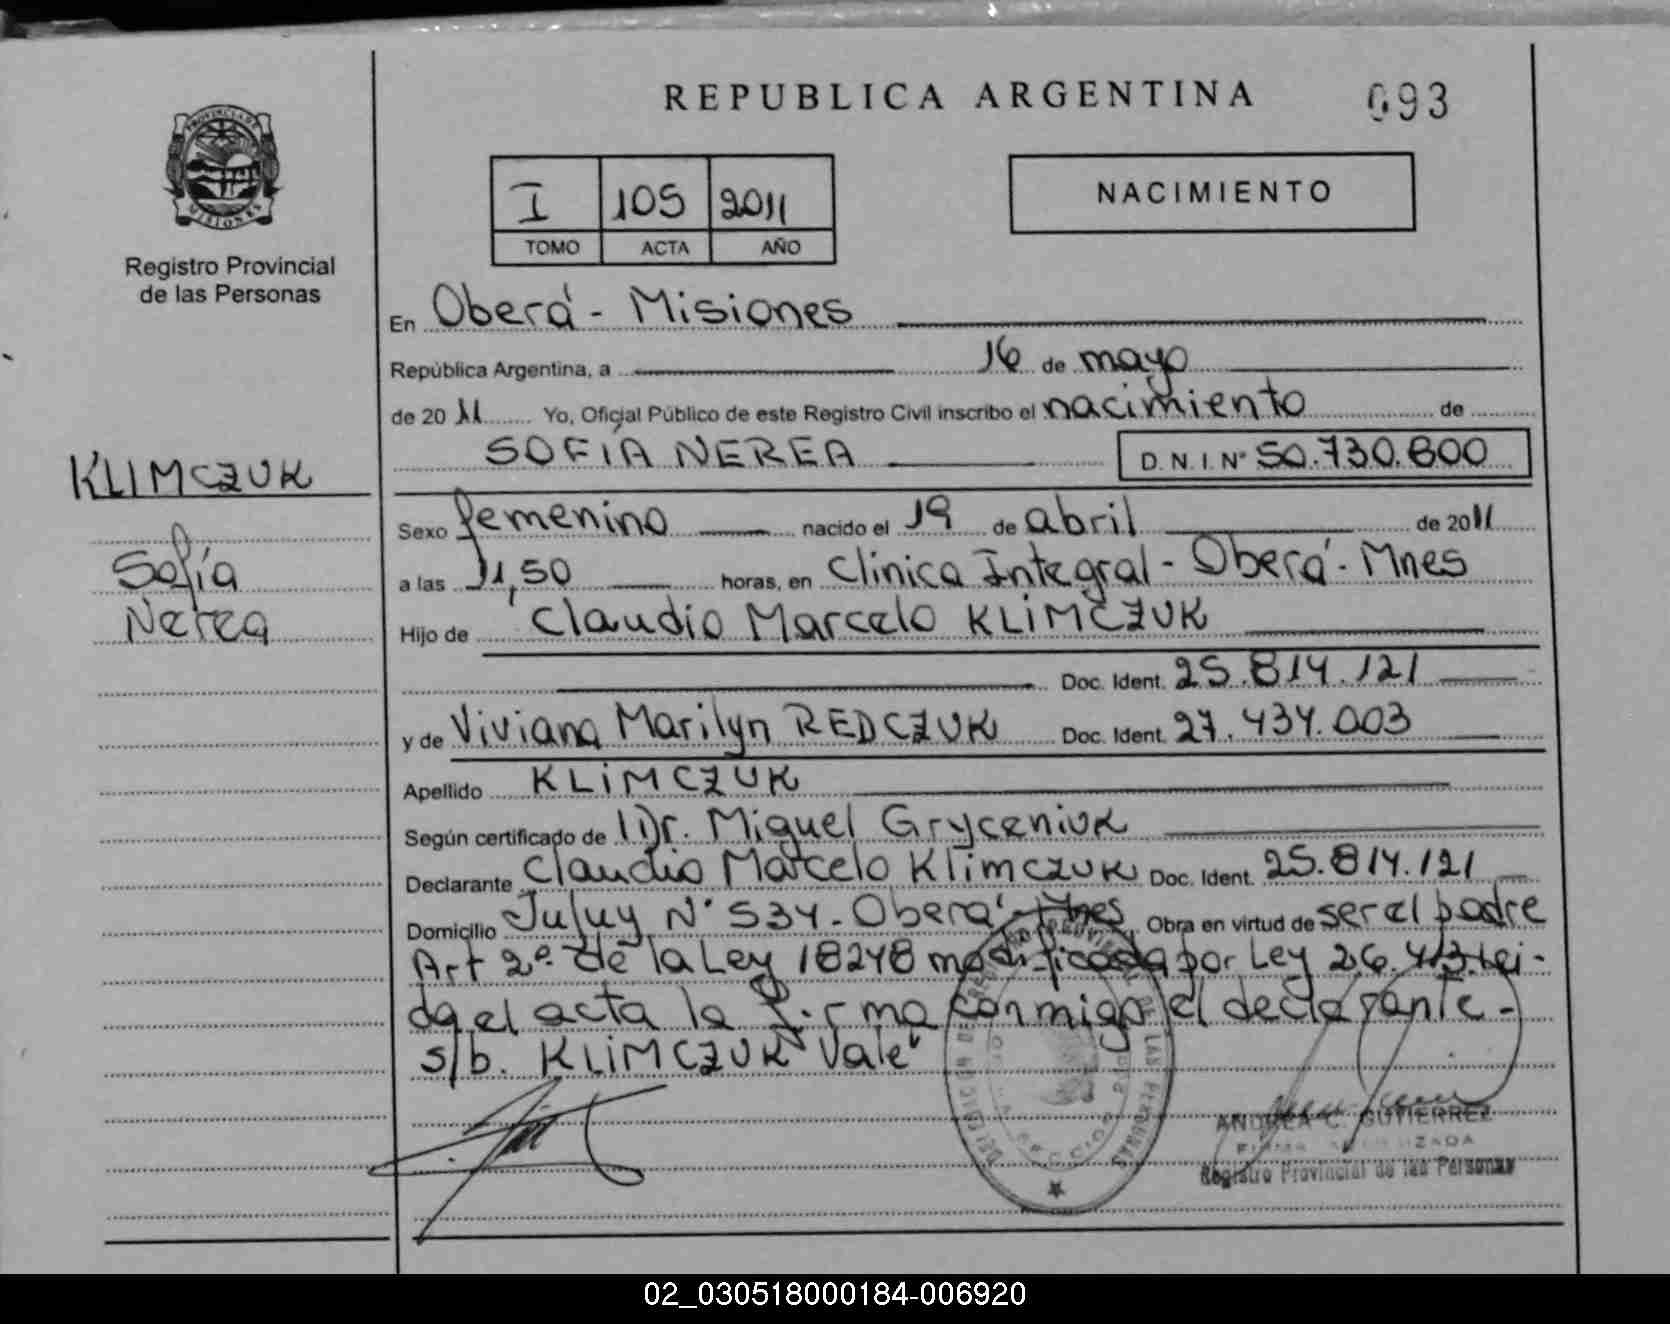 REPUBLICA ARGENTINA 093
PROVINCIA DE
MISIONES
Registro Provincial
de las Personas
I 105 2011
TOMO ACTA AÑO
NACIMIENTO
En Oberá - Misiones
República Argentina, a 16 de mayo
de 2011 Yo, Oficial Público de este Registro Civil inscribo el nacimiento de
SOFÍA NEREA D.N.I. N° 50.730.600
KLIMCZUK
Sofía
Nerea
Sexo femenino nacido el 19 de abril de 2011
a las 11,50 horas, en Clinica Integral - Oberá - Mnes
Hijo de Claudio Marcelo KLIMCZUK
Doc. Ident. 25.814.121
y de Viviana Marilyn REDCZUK Doc. Ident. 27.434.003
Apellido KLIMCZUK
Según certificado de Dr. Miguel Gryceniuk
Declarante Claudio Marcelo Klimczuk Doc. Ident. 25.814.121
Domicilio Jujuy N° 534 - Oberá - Mnes Obra en virtud de ser el padre
Art 2º de la Ley 18248 modificada por Ley 26.413 Lei-
da el acta la firma conmigo el declarante -
s/b. KLIMCZUK "Vale"
DE LAS PERSONAS
ANDREA C. GUTIERREZ
FIRMA AUTORIZADA
Registro Provincial de las Personas
02_030518000184-006920